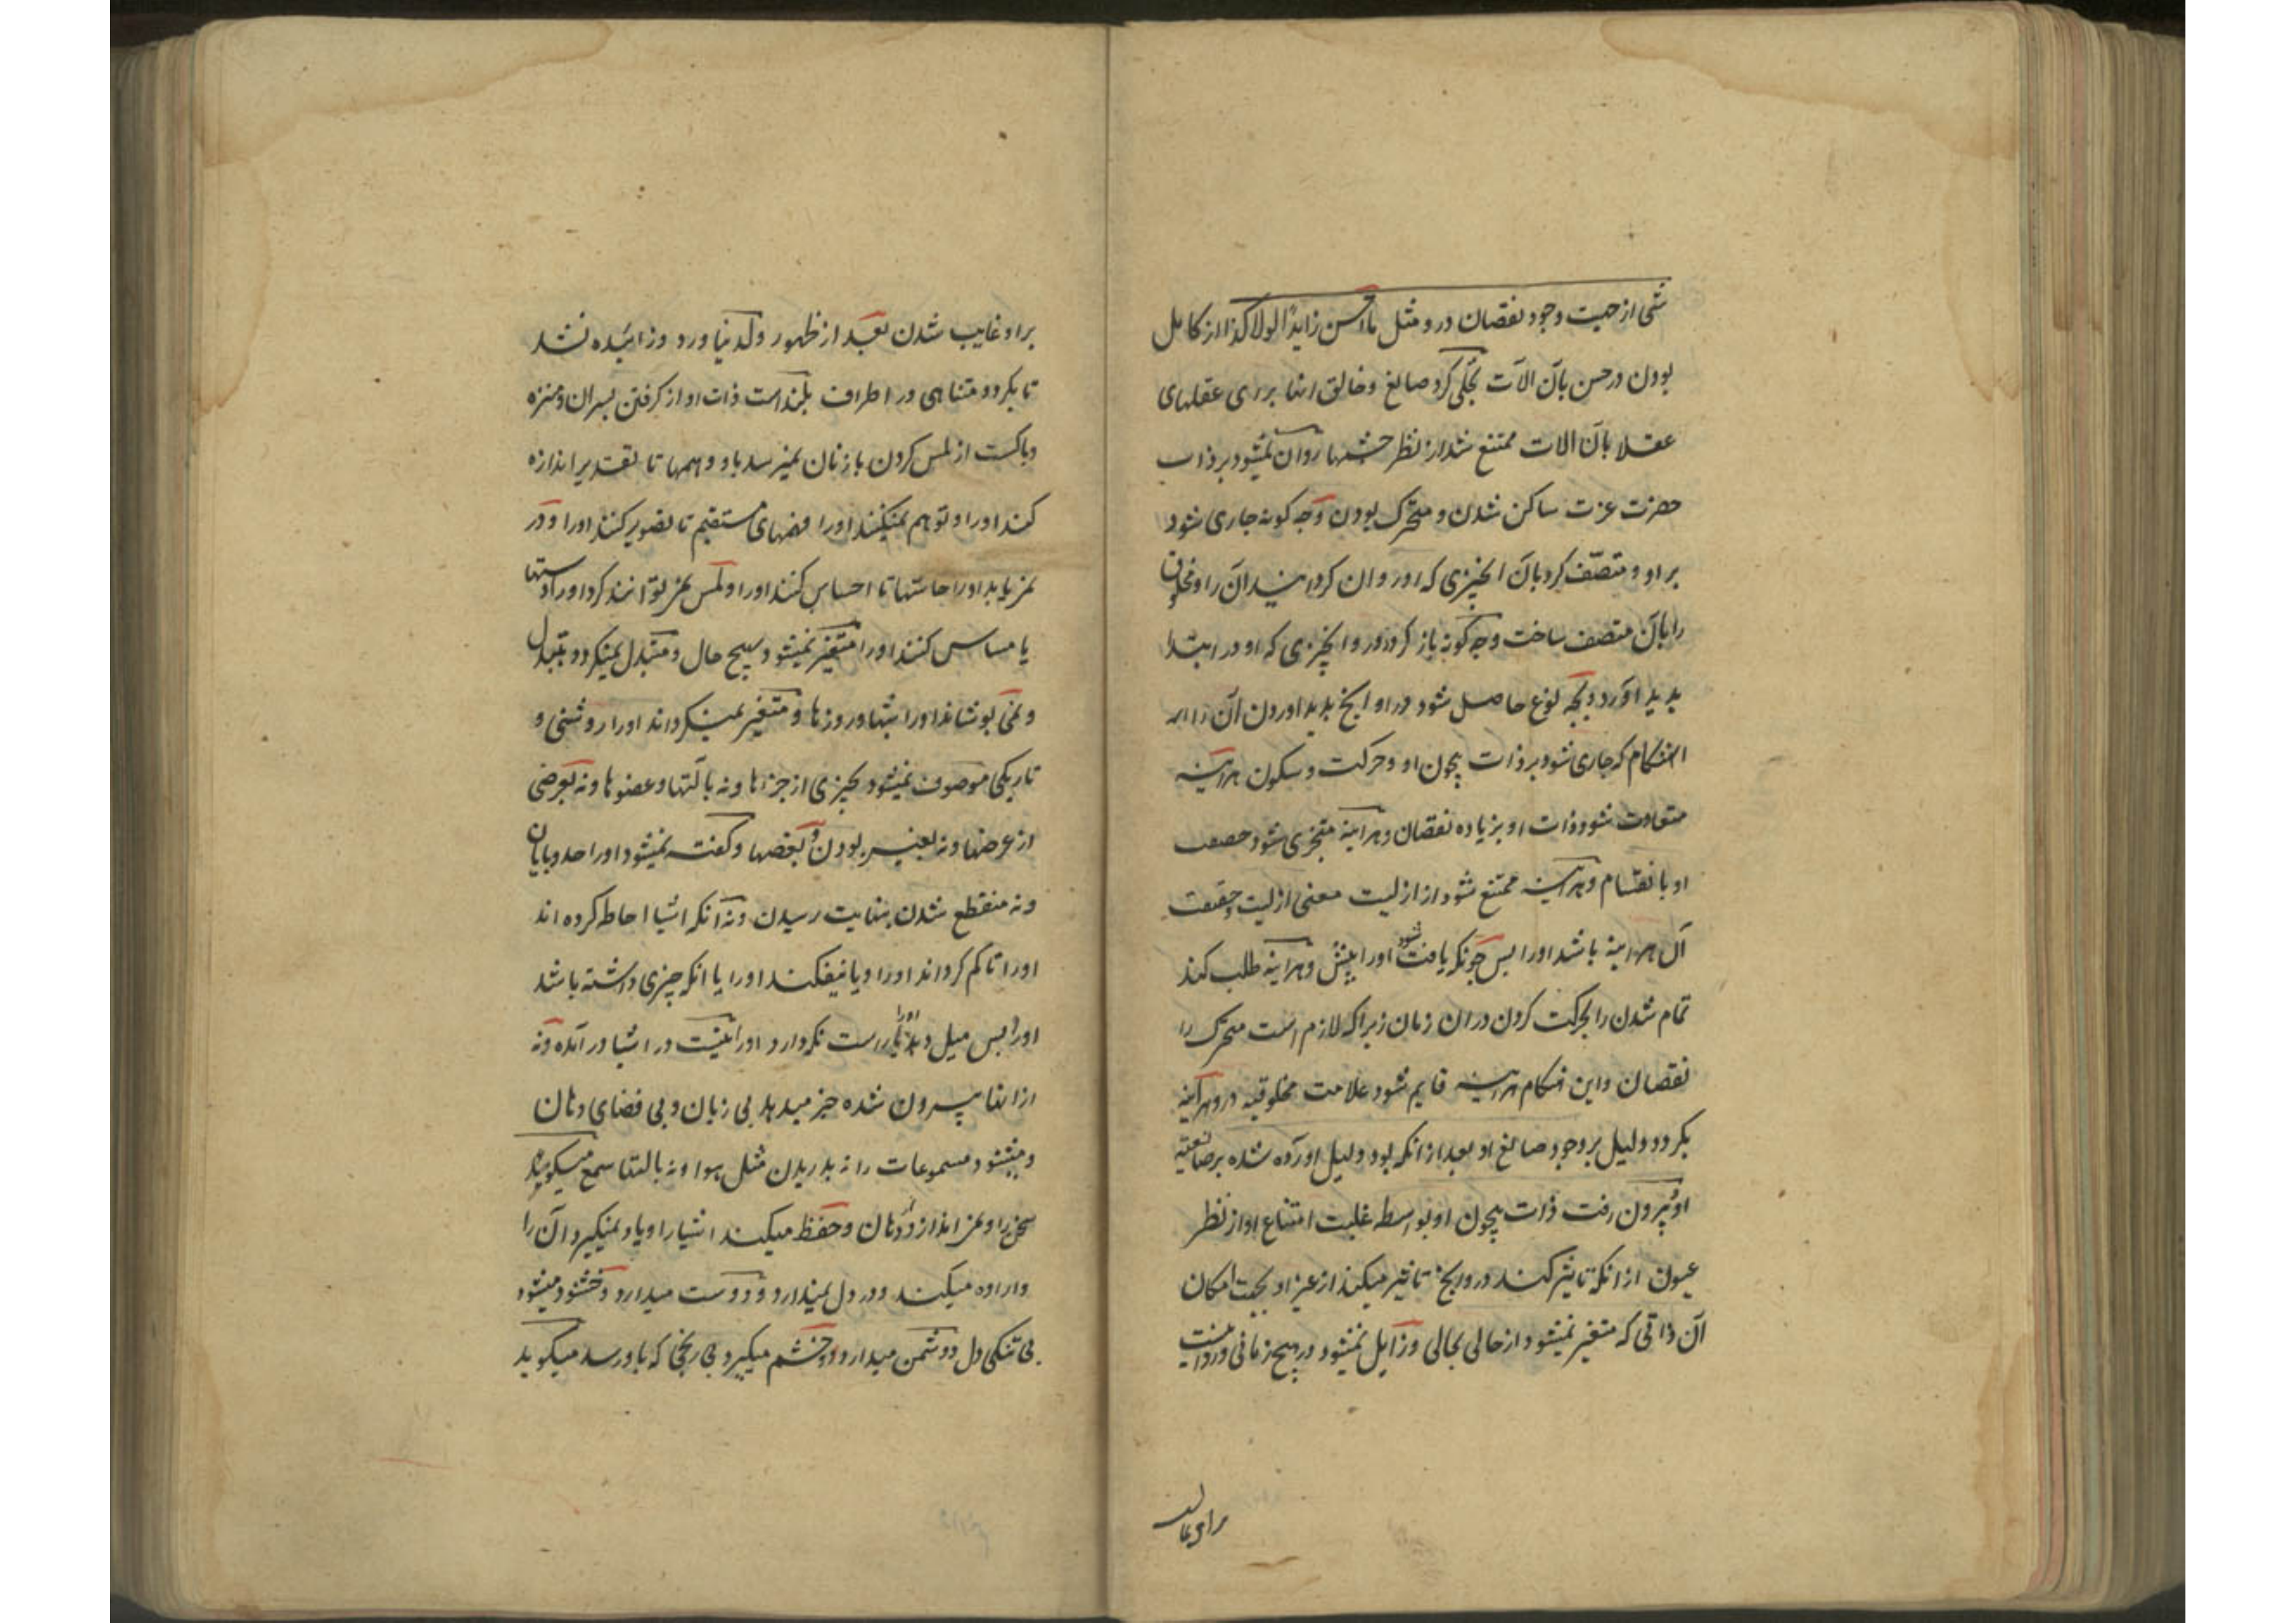 شی از حیت وجود نقصان درو مثل ما احسن زایدا لولا کذا از کامل
بودن در حسن بآن الآت تجلی کرد صانع و خالق انها برای عقلهای
عقلا بآن الات ممتنع شد از نظر چشمها روان نمیشود بر ذات
حضرت عزت ساکن شدن و متحرک بودن و چه کونه جاری شود
بر او و متصّف کرد بآن انچیزی که او روان کردانید آن را و مخلوق
را بآن متصف ساخت و چه کونه باز کردد در و انچیزی که او در ابتدا
پدید اورد و بچه نوع حاصل شود در او انچ پدید اوردن آن را
انهنکام که جاری شود بر ذات بیچون او و حرکت و سکون هر اینه
متفاوت شود ذات او بزیاده نقصان و هر اینه متجزی شود حقیقت
او بانقسام و هر اینه ممتنع شود از ازلیت معنی ازلیت و حقیقت
آن هر اینه باشد اورا پس چونکه یافت شود اورا پیش و هر اینه طلب کند
تمام شدن را بحرکت کردن در ان زمان زیرا که لازم است متحرک را
نقصان و این هنکام هر اینه قایم شود علامت مخلوقیه درو و هر آینه
بکردد دلیل بر وجود صانع او بعد از انکه بود دلیل اورده شده بر صانعیه
او و بیرون رفت ذات بیچون او بواسطه غلبت امتناع او از نظر
عیون از انکه تاثیر کند درو انچ تاثیر میکند از غیر او بجهت امکان
آن ذاتی که متغیر نمیشود از حالی بحالی و زایل نمیشود در هیچ زمانی و روا نیست
بر او غایب شدن بعد از ظهور ولد نیاورد و زائیده نشد
تا بکردد متناهی در اطراف بلند است ذات او از کرفتن پسران و منزه
و پاکست از لمس کردن با زنان نمیرسد باو وهمها تا تقدیر اندازه
کند اورا و توهم نمیکنند اورا فهمهای مستقیم تا تصویر کنند اورا و در
نمز یابد اورا حاستها تا احساس کنند اورا و لمس نمز توانند کرد اورا دستها
یا مساس کنند اورا متغیر نمیشود بهیچ حال و متبدل نمیکردد بتبدل
و نمی پوشاند اورا شبها و روزها و متغیر نمیکرداند اورا روشنی و
تاریکی موصوف نمیشود بچیزی از جزها و نه بآلتها و عضوها و نه بعرضی
از عرضها و نه بغیر بودن و بعضها و کفته نمیشود اورا حد و پایان
و نه منقطع شدن بنهایت رسیدن و نه آنکه اشیا احاطه کرده اند
اورا تا کم کرداند اورا و یا بیفکند اورا یا انکه چیزی داشته باشد
اورا پس میل دهد اورا یا راست نکردارد اورا نیست در اشیا در آمده و نه
از انها بیرون شده خبز میدهد بی زبان و بی فضای دهان
و میشنود مسموعات را نه بدریدن مثل هوا و نه بالتها سمع میکوید
سخن را و نمز اندازد از دهان و حفظ میکند اشیا را و یاد نمیکیرد آن را
و اراده میکند و در دل نمیدارد و دوست میدارد و خشنود میشود
بی تنکی دل و دشمن میدارد و خشم میکیرد بی رنجی که باو رسد میکوید